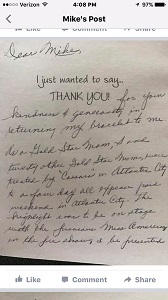 Verizon 4:08 PM 97%
Mike's Post
Like Comment Share
Dear Mike,
I just wanted to say...
THANK YOU! for your
kindness & generosity in
returning my bracelet to me
As a Gold Star Mom, I and
twenty other Gold Star Moms, were
treated by "Caesars" in Atlantic City
to a fun day all appear paid
weekend in Atlantic City. The
highlight was to be on stage
with the previous Miss Americas
in the pre show & be presented
Like Comment Share